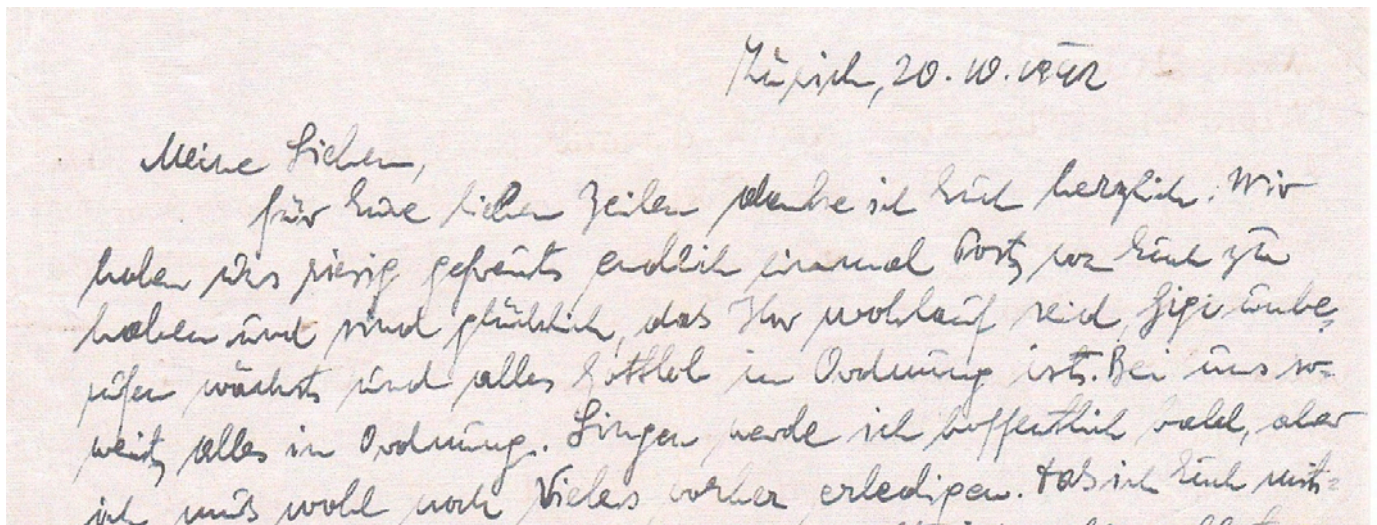 Zürich, 20. 10. 1942
Meine Lieben,
für Eure lieben Zeilen danke ich Euch herzlich. Wir
haben uns riesig gefreut, endlich einmal Post von Euch zu
haben und sind glücklich, das Ihr wohlauf seid, Gigi unbe-
rufen wächst und alles Gottlob in Ordnung ist. Bei uns so-
weit alles in Ordnung. Singen werde ich hoffentlich bald, aber
ich muß wohl noch Vieles vorher erledigen. Das ich Euch nicht